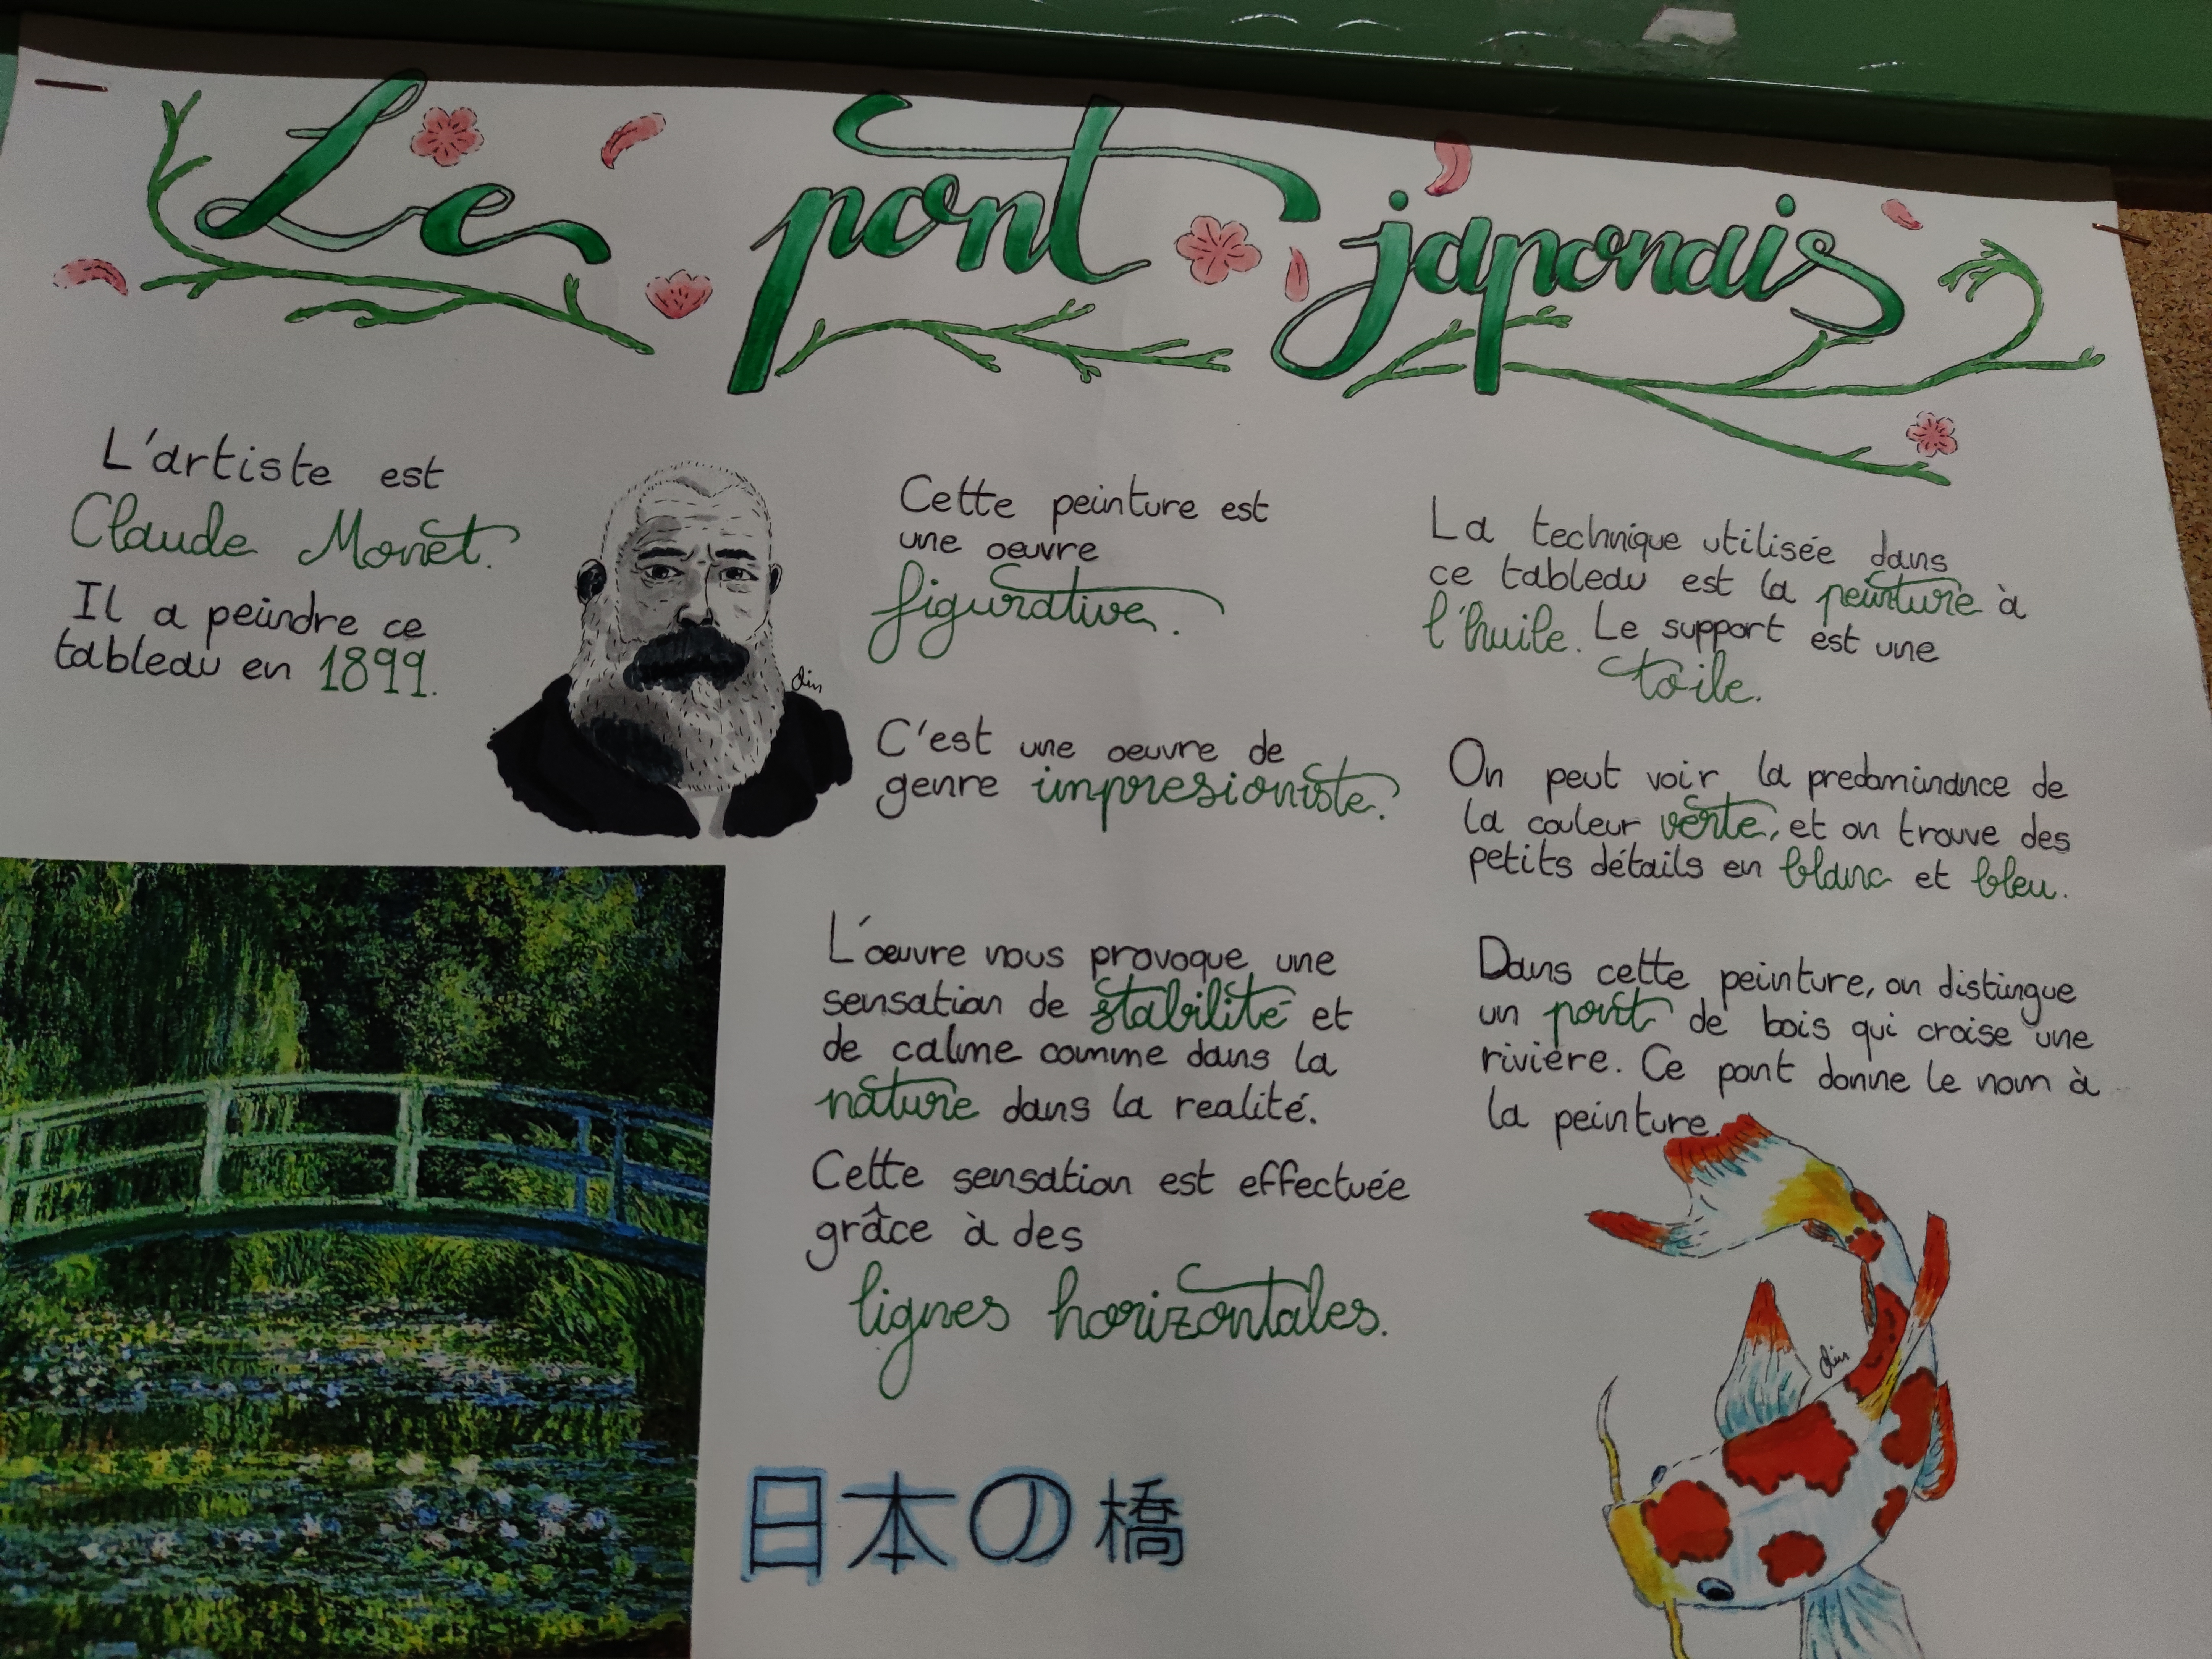 Le pont japonais
L'artiste est
Claude Monet.
Il a peindre ce
tableau en 1899.
din
Cette peinture est
une oeuvre
figurative.
C'est une oeuvre de
genre impresioniste.
L'œuvre nous provoque une
sensation de stabilité et
de calme comme dans la
nature dans la realité.
Cette sensation est effectuée
grâce à des
lignes horizontales.
日本の橋
La technique utilisée dans
ce tableau est la peinture à
l'huile. Le support est une
toile.
On peut voir la predominance de
la couleur verte, et on trouve des
petits détails en blanc et bleu.
Dans cette peinture, on distingue
un pont de bois qui croise une
rivière. Ce pont donne le nom à
la peinture.